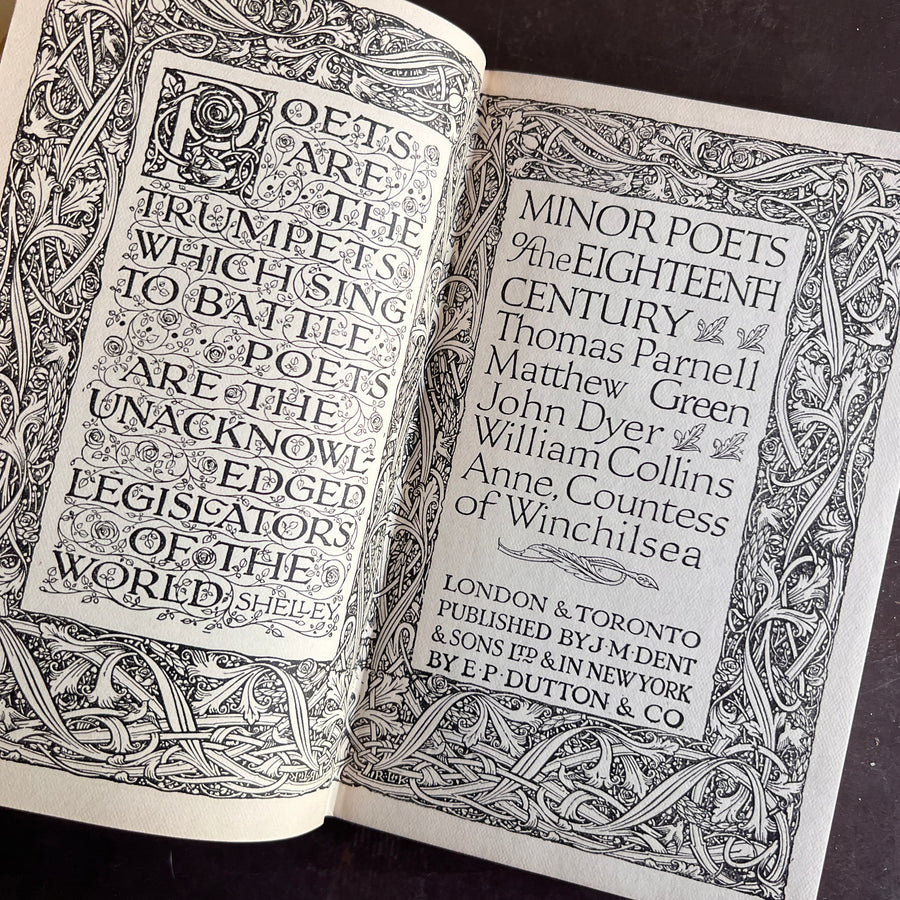 POETS
ARE
THE
TRUMPETS
WHICH SING
TO BATTLE
POETS
ARE THE
UNACKNOWL
EDGED
LEGISLATORS
OF THE
WORLD SHELLEY
MINOR POETS
of the EIGHTEENH
CENTURY
Thomas Parnell
Matthew Green
John Dyer
William Collins
Anne, Countess
of Winchilsea
LONDON & TORONTO
PUBLISHED BY J·M·DENT
& SONS LTD & IN NEW YORK
BY E·P·DUTTON & CO